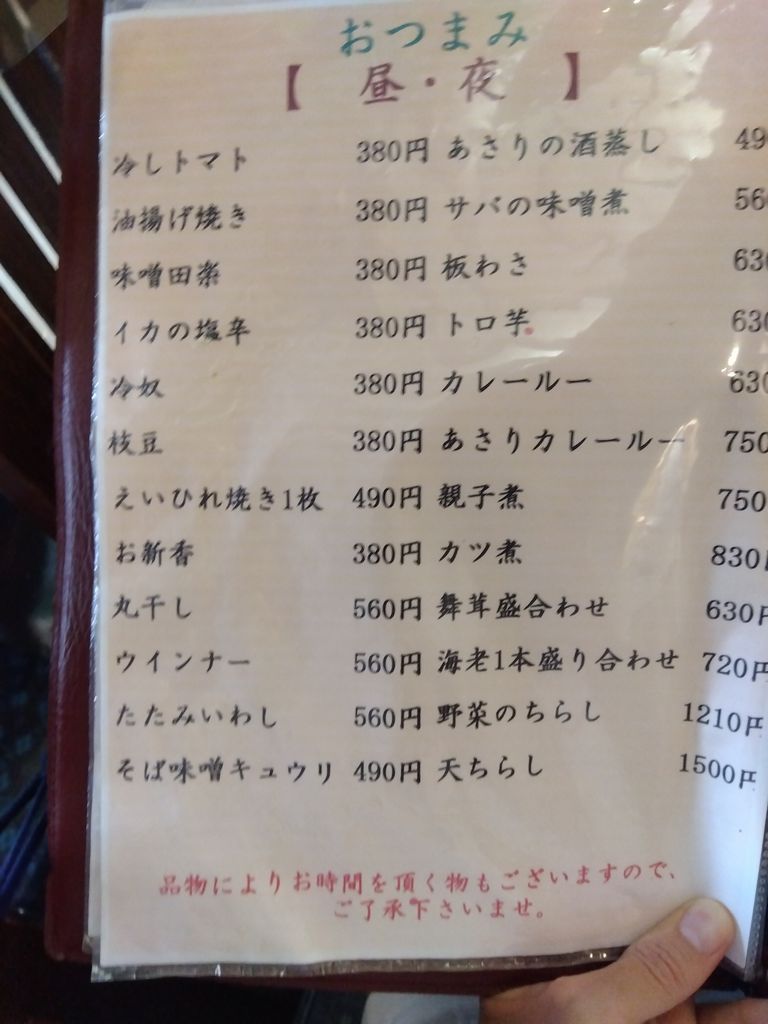 おつまみ
【 昼・夜 】
冷しトマト 380円 あさりの酒蒸し 490
油揚げ焼き 380円 サバの味噌煮 560
味噌田楽 380円 板わさ 630
イカの塩辛 380円 トロ芋 630
冷奴 380円 カレールー 630
枝豆 380円 あさりカレールー 750
えいひれ焼き1枚 490円 親子煮 750
お新香 380円 カツ煮 830円
丸干し 560円 舞茸盛合わせ 630円
ウインナー 560円 海老1本盛り合わせ 720円
たたみいわし 560円 野菜のちらし 1210円
そば味噌キュウリ 490円 天ちらし 1500円
品物によりお時間を頂く物もございますので、
ご了承下さいませ。